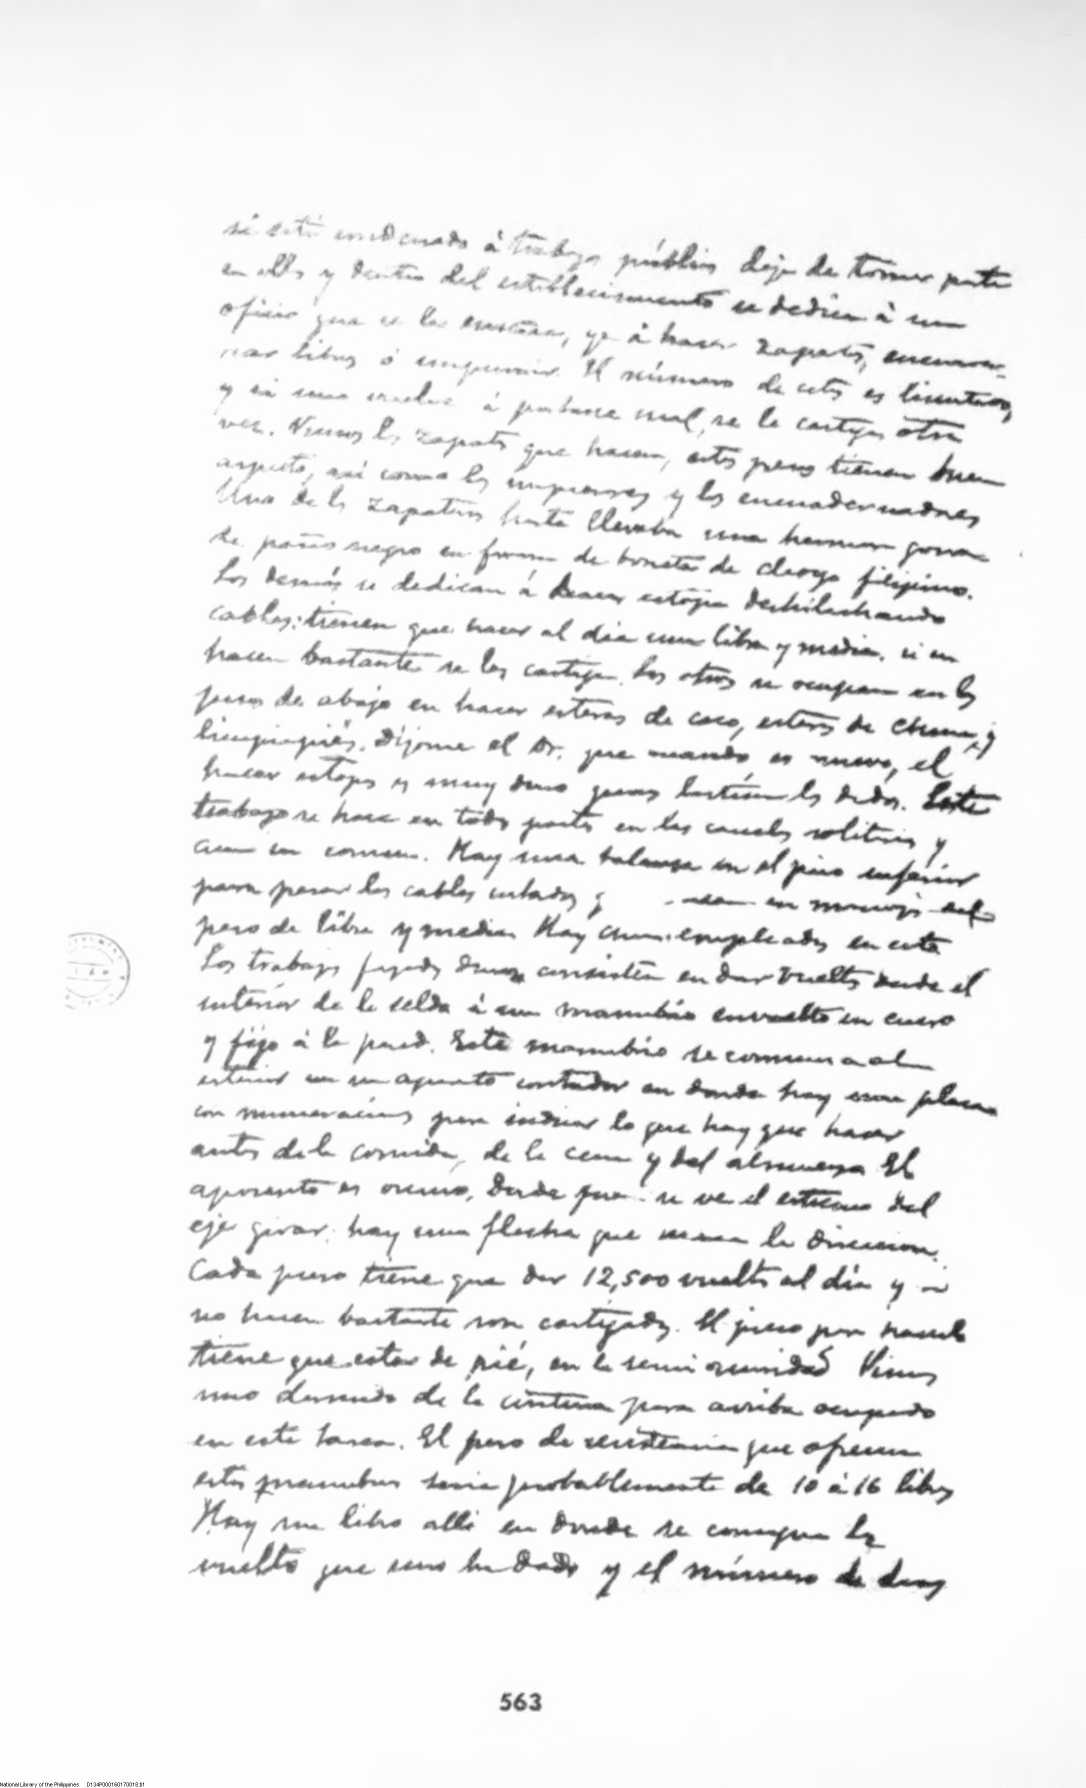 si está condenado á trabajos públicos deja de tomar parte
en ellos y dentro del establecimiento se dedica á un
oficio que se le enseña, ya á hacer zapatos, encuader-
nar libros ó imprimir. El número de estos es limitado,
y si uno vuelve á portarse mal, se le castiga otra
vez. Vimos los zapatos que hacen, estos presos tienen buen
aspecto, así como los impresores y los encuadernadores
Uno de los zapateros hasta llevaba una hermosa gorra
de paño negro en forma de bonete de clérigo filipino.
Los demás se dedican á hacer estopa deshilachando
cables: tienen que hacer al dia una libra y media, si no
hacen bastante se les castiga. Los otros se ocupan en los
pisos de abajo en hacer esteras de coco, esteras de
limpiapiés. Díjome el Dr. que cuando es nuevo, el
hacer estopa es muy duro pues lastima los dedos. Este
trabajo se hace en todas partes en las celdas solitarias y
aun en comun. Hay una balanza en el piso inferior
para pesar los cables cortados y en manojos del
peso de libra y media. Hay chinos empleados en esto
Los trabajos forzados duros consisten en dar vueltas desde el
interior de la celda á un manubrio envuelto en cuero
y fijo á la pared. Este manubrio se comunica al
exterior con un aparato contador en donde hay una placa
con numeraciones para indicar lo que hay que hacer
antes de la comida, de la cena y del almuerzo. El
aposento es oscuro, desde fuera se ve el extremo del
eje girar: hay una flecha que marca la direccion.
Cada preso tiene que dar 12,500 vueltas al día y si
no hacen bastante son castigados. El preso para hacerlo
tiene que estar de pié, en la semi oscuridad Vimos
uno desnudo de la cintura para arriba ocupado
en esta tarea. El peso de resistencia que ofrecen
estos manubrios seria probablemente de 10 á 16 libras
Hay un libro allí en donde se consigna las
vueltas que uno ha dado y el número de días
563
National Library of the Philippines